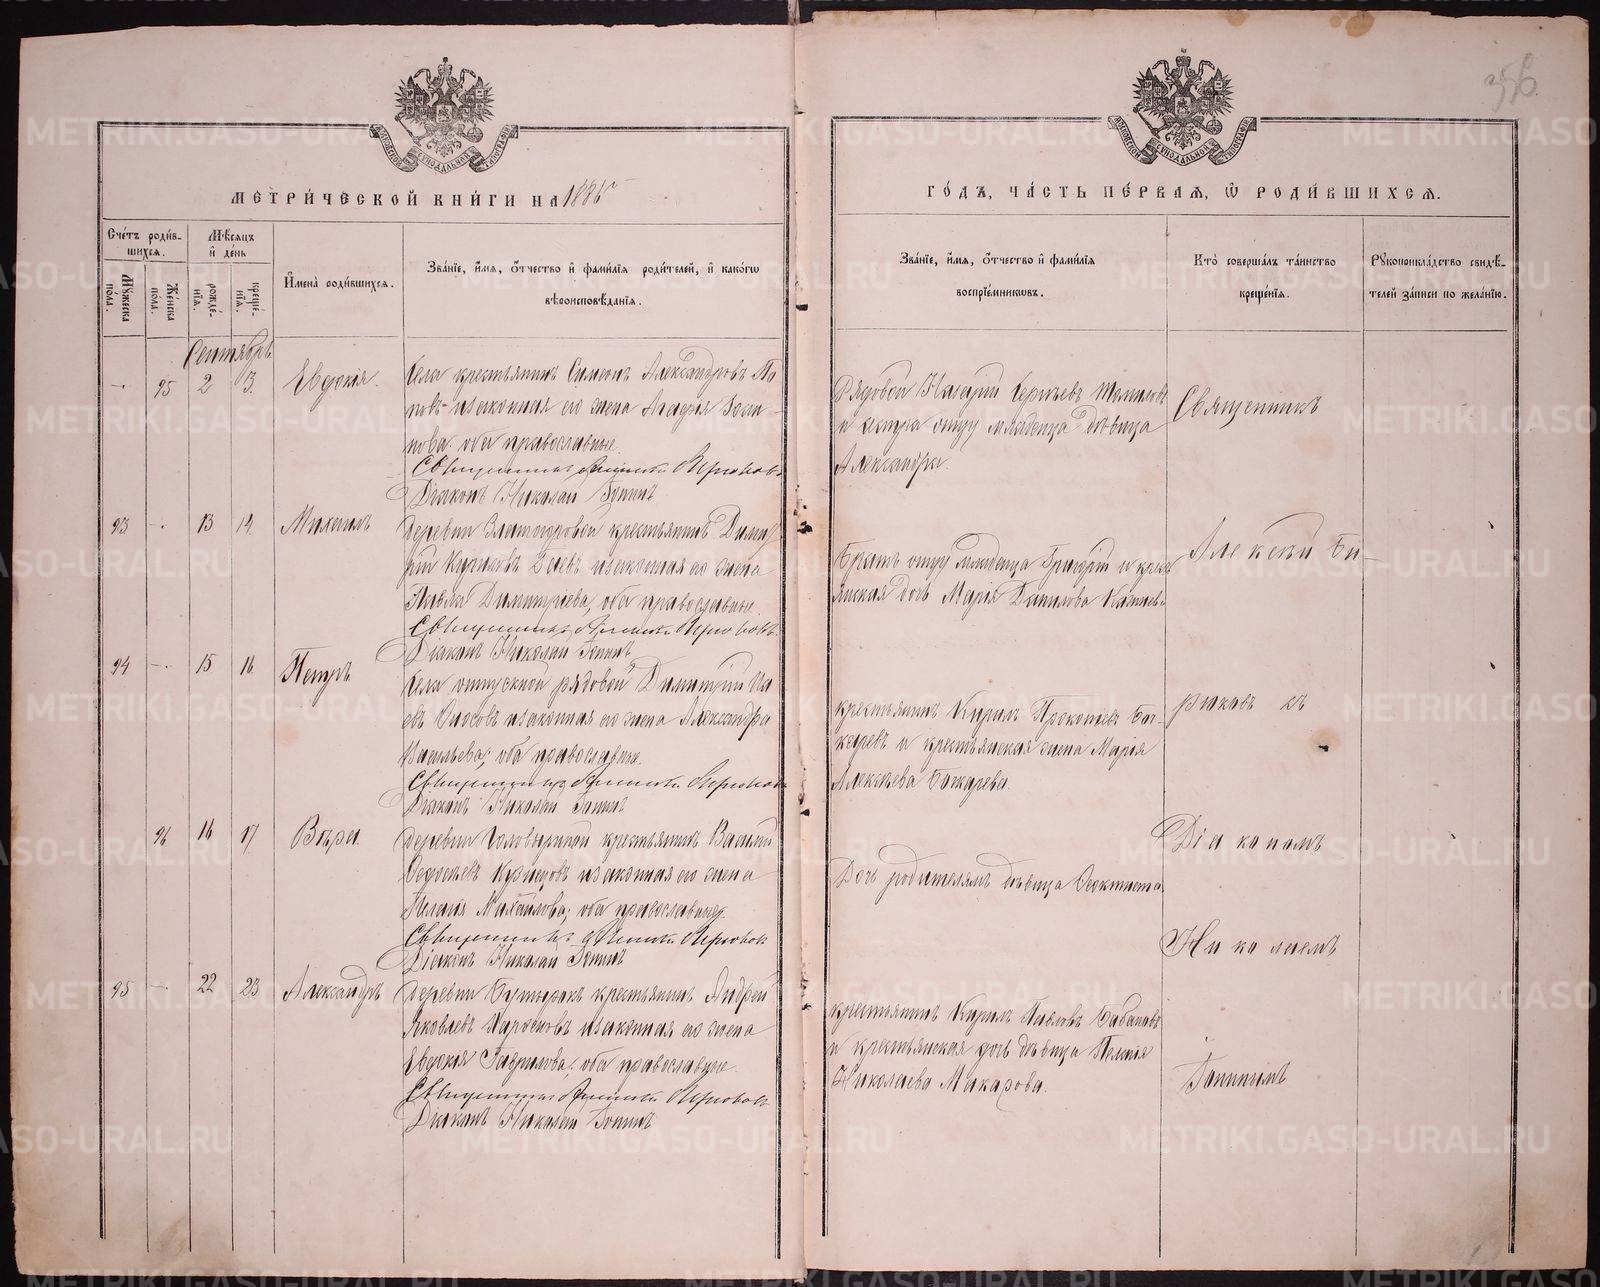 356
МОСКОВСКОЙ СѴНОДАЛЬНОЙ ТИПОГРАФІИ
МОСКОВСКОЙ СѴНОДАЛЬНОЙ ТИПОГРАФІИ
МЕТРИ́ЧЕСКОЙ КНИ́ГИ НА 1886
ГО́ДЪ, ЧА́СТЬ ПЕ́РВАЯ, Ѡ РОДИ́ВШИХСЯ.
Сче́тъ роди́в-
шихся.
Мѣ́сяцъ
и де́нь
Му́жеска
по́ла.
Же́нска
по́ла.
рожде́-
нїя.
креще́-
нїя.
И҆мена̀ роди́вшихся.
Зва́нїе, и҆́мя, ѻ҆́тчество и҆ фами́лїя роди́телей, и҆ како́гѡ
вѣроисповѣ́данїя.
Зва́нїе, и҆́мя, ѻ҆́тчество и҆ фами́лїя
воспрїе́мникѡвъ.
Кто̀ соверша́лъ та́инство
креще́нїя.
Рꙋкоприкла́дство свидѣ́-
телей за́писи по жела́нїю.
Сентябрь
—. 95 2 3. Евдокія.
Села крестьянинъ Симеонъ Александровъ По-
повъ и законная его жена
оба православные.
Священникъ Алексій Бирюковъ
Діаконъ Николай Гапинъ
Рядовой Назарій Сергѣевъ
и сестра отцу младенца дѣвица
Александра.
Священникъ
93 —. 13 14. Михаилъ
Деревни Златогоровой крестьянинъ Дими-
трій и законная его жена
Павла Димитріева, оба православные.
Священникъ Алексій Бирюковъ
Діаконъ Николай Гапинъ
Братъ отцу младенца Григорій и кресть-
янская дочь Марія Данилова
Алексѣй Би-
94 —. 15 16. Петръ
Села отпускной рядовой Димитрій
и законная его жена Александра
Васильева, оба православные.
Священникъ Алексій Бирюковъ
Діаконъ Николай Гапинъ
крестьянинъ Кирилъ Прокопьевъ Бо-
каревъ и крестьянская жена Марія
Алексѣева Бокарева.
рюковъ съ
96 16 17. Вѣра.
Деревни крестьянинъ Василій
Федосѣевъ Кузнецовъ и законная его жена
Пелагія Михайлова, оба православные.
Священникъ Алексій Бирюковъ
Діаконъ Николай Гапинъ
Дочь родителямъ дѣвица Феоктиста
Діакономъ
Николаемъ
95 — 22 23 Александръ
Деревни Бутырокъ крестьянинъ Андрей
Яковлевъ и законная его жена
Евдокія Гаврилова, оба православные.
Священникъ Алексій Бирюковъ
Діаконъ Николай Гапинъ
крестьянинъ Кирилъ Павловъ Бабановъ
и крестьянская дочь дѣвица Пелагія
Николаева Макарова.
Гапинымъ